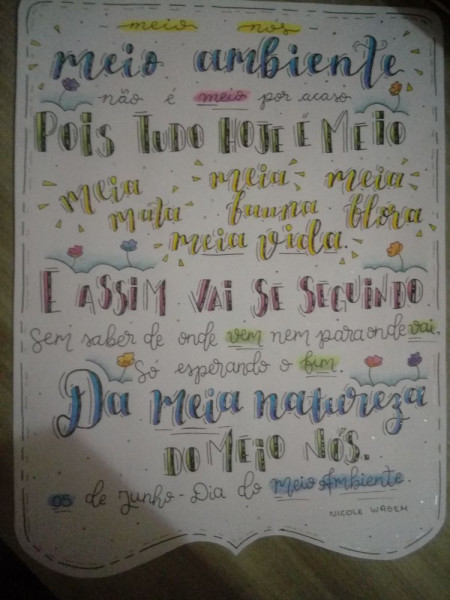 meio nós
meio ambiente
não é meio por acaso
Pois Tudo Hoje é Meio
meia meia meia
mata fauna flora
meia vida.
E ASSIM VAI SE SEGUINDO
Sem saber de onde vem nem para onde vai.
Só esperando o fim.
Da meia natureza
DO MEIO NÓS.
05 de Junho - Dia do meio Ambiente.
NICOLE WAGEM